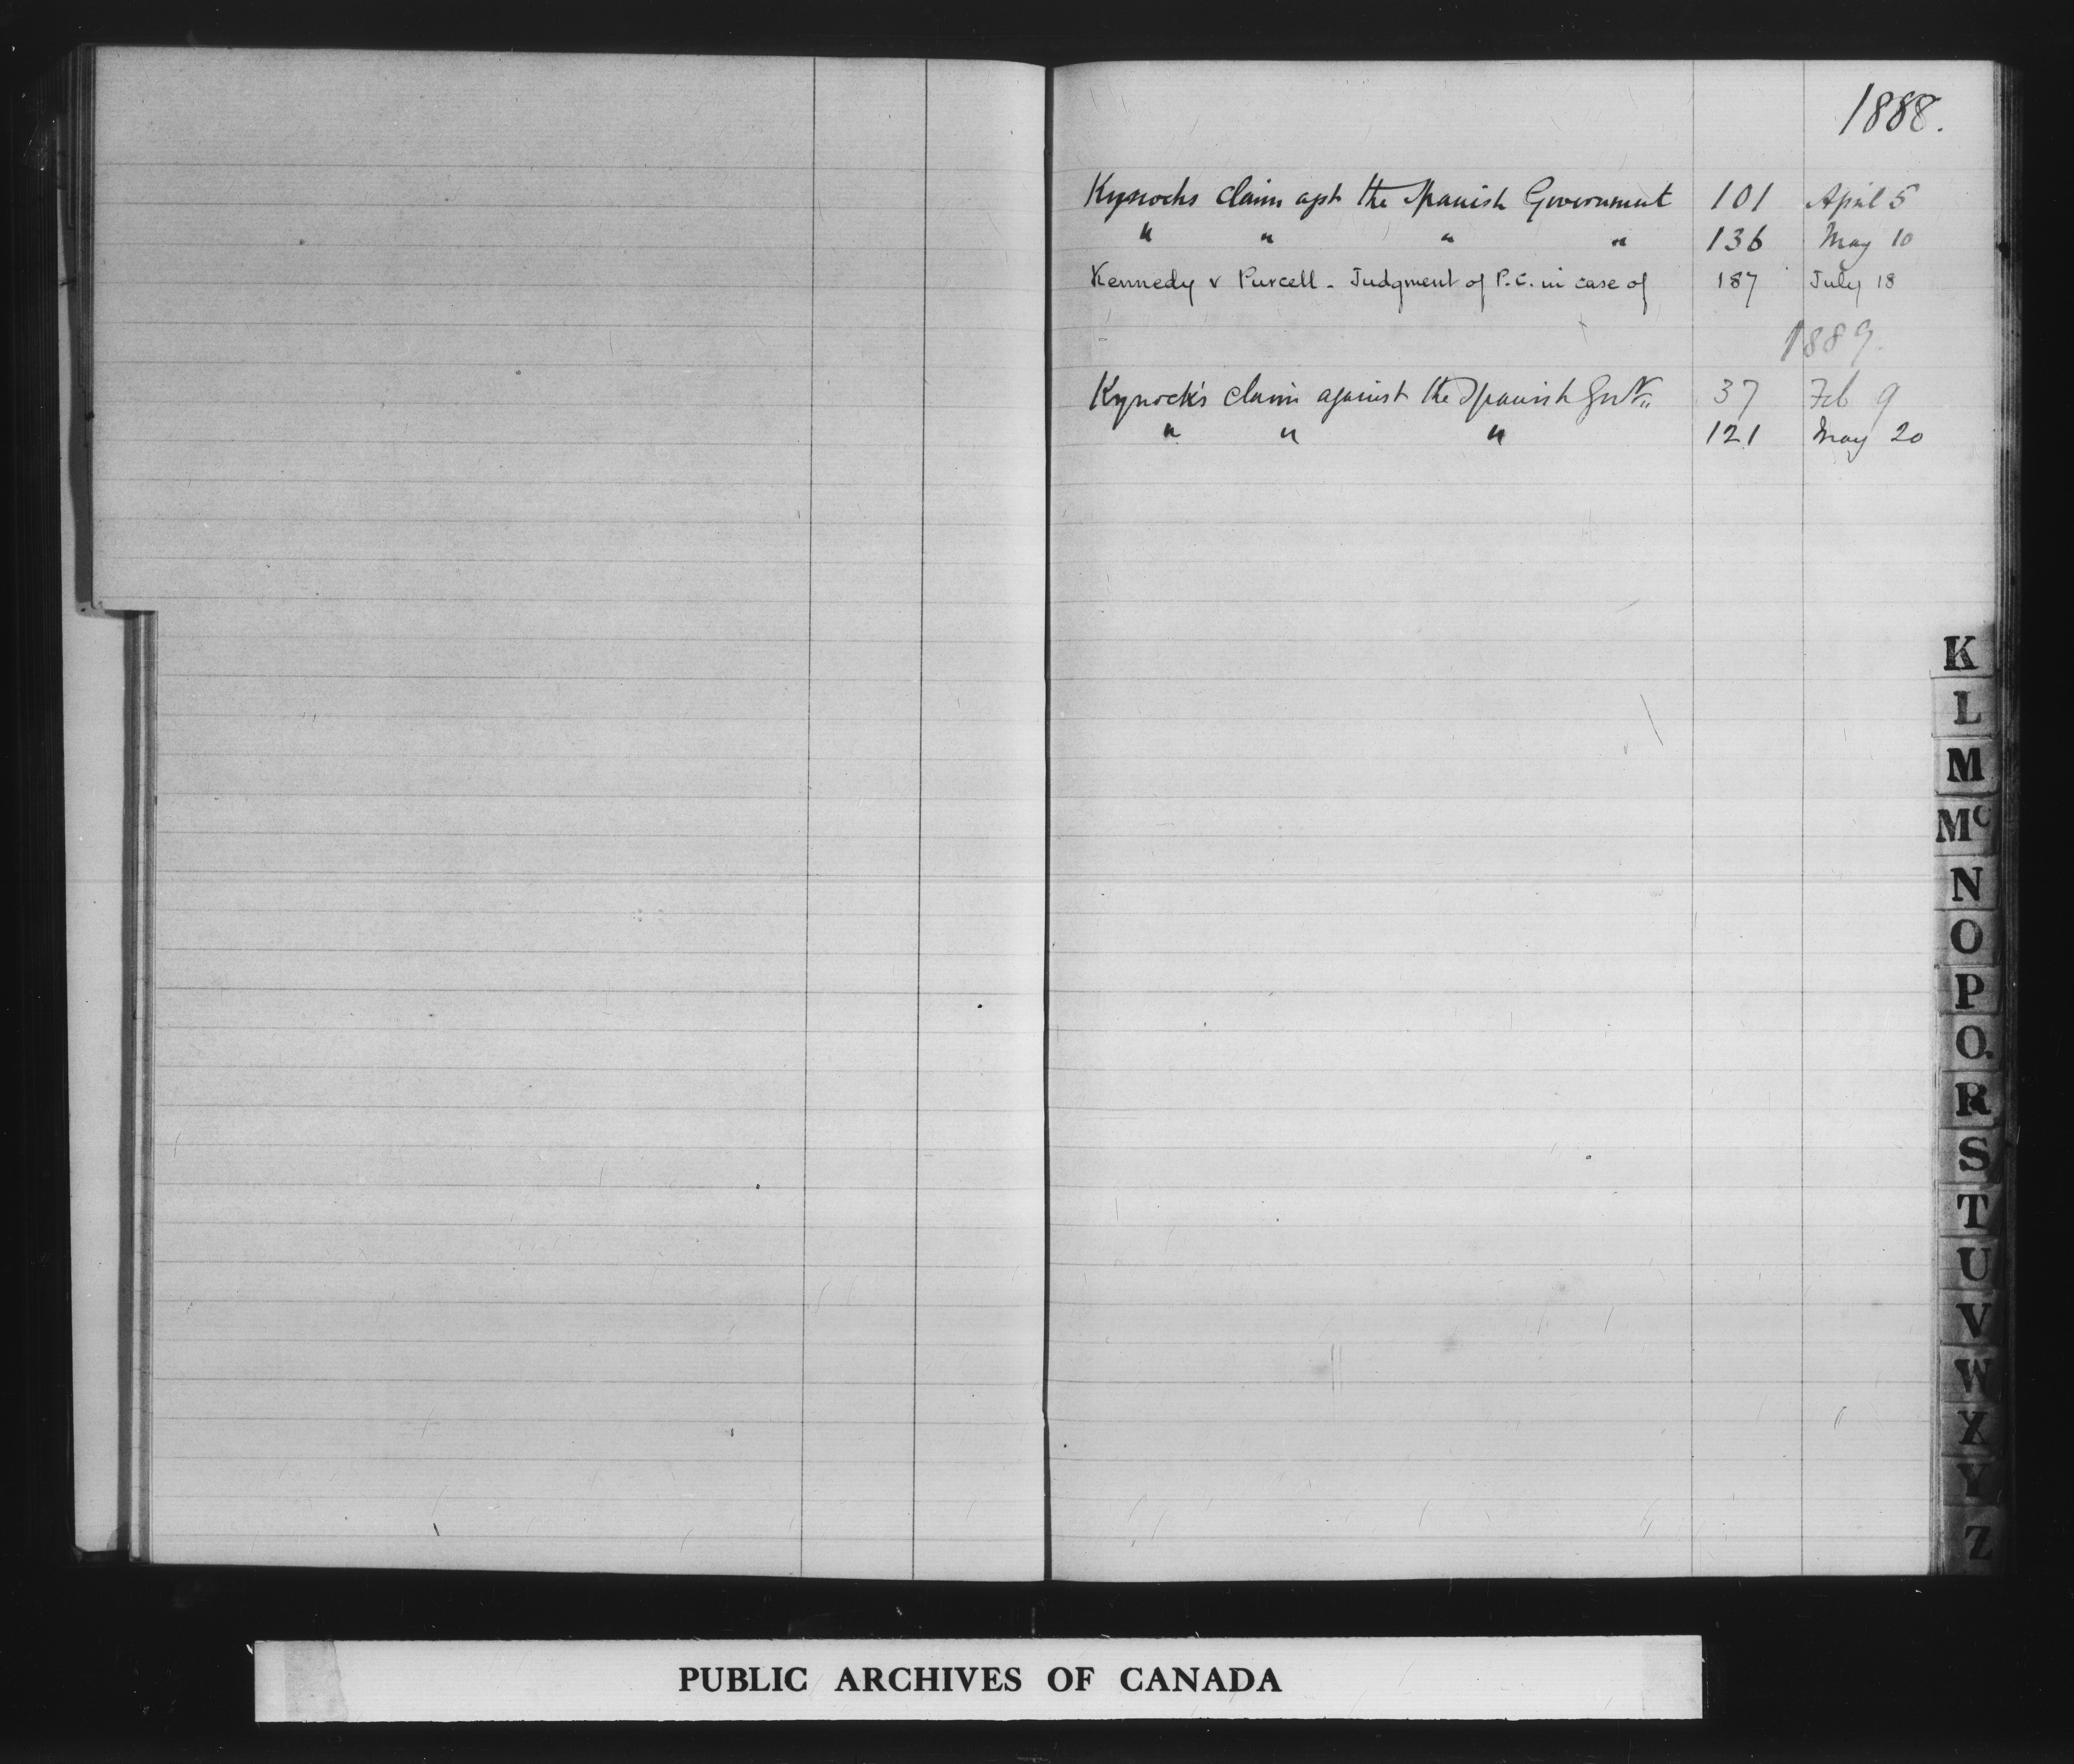 1888.
Kynochs claim agst the Spanish Government 101 April 5
" " " " 136 May 10
Kennedy v Purcell - Judgment of P.C. in case of 187 July 18
1889.
Kynock's claim against the Spanish Govt. 37 Feb 9
" " " 121 May 20
K
L
M
Mc
N
O
P
Q
R
S
T
U
V
W
X
Y
Z
PUBLIC ARCHIVES OF CANADA